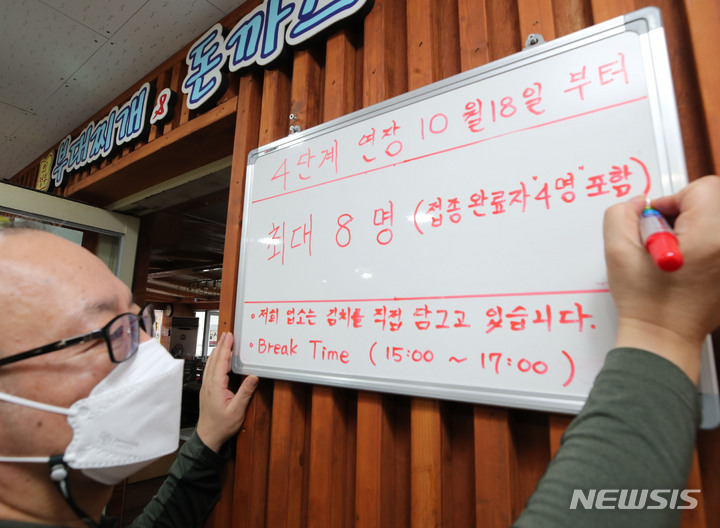 부대찌개 & 돈까스
4단계 연장 10월18일 부터
최대 8 명 (접종 완료자"4명"포함)
• 저희 업소는 김치를 직접 담그고 있습니다.
• Break Time ( 15:00 ~ 17:00 )
NEWSIS